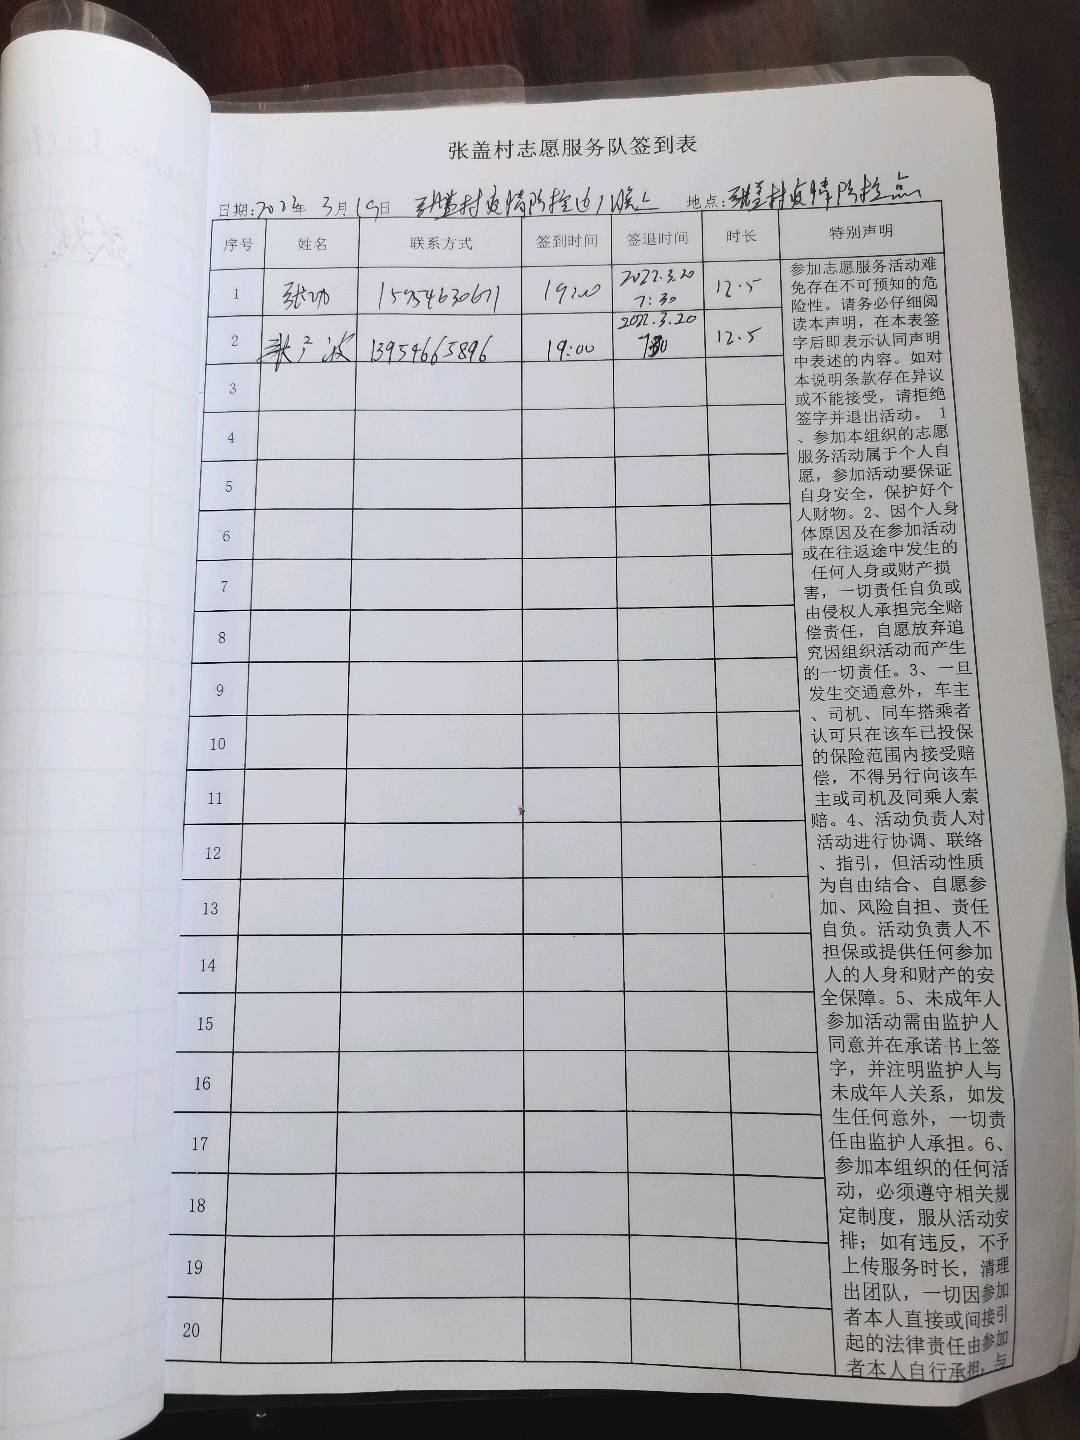 张盖村志愿服务队签到表
日期:2022年 3月19日 张盖村疫情防控 晚上 地点:张盖村疫情防控点
序号 姓名 联系方式 签到时间 签退时间 时长 特别声明
1 张功 15954630671 19:00 2022.3.20 7:30 12.5
2 张广波 13954665896 19:00 2022.3.20 7:30 12.5
3
4
5
6
7
8
9
10
11
12
13
14
15
16
17
18
19
20
参加志愿服务活动难
免存在不可预知的危
险性。请务必仔细阅
读本声明，在本表签
字后即表示认同声明
中表述的内容。如对
本说明条款存在异议
或不能接受，请拒绝
签字并退出活动。 1
、参加本组织的志愿
服务活动属于个人自
愿，参加活动要保证
自身安全，保护好个
人财物。2、因个人身
体原因及在参加活动
或在往返途中发生的
任何人身或财产损
害，一切责任自负或
由侵权人承担完全赔
偿责任，自愿放弃追
究因组织活动而产生
的一切责任。3、一旦
发生交通意外，车主
、司机、同车搭乘者
认可只在该车已投保
的保险范围内接受赔
偿，不得另行向该车
主或司机及同乘人索
赔。4、活动负责人对
活动进行协调、联络
、指引，但活动性质
为自由结合、自愿参
加、风险自担、责任
自负。活动负责人不
担保或提供任何参加
人的人身和财产的安
全保障。5、未成年人
参加活动需由监护人
同意并在承诺书上签
字，并注明监护人与
未成年人关系，如发
生任何意外，一切责
任由监护人承担。6、
参加本组织的任何活
动，必须遵守相关规
定制度，服从活动安
排；如有违反，不予
上传服务时长，清理
出团队，一切因参加
者本人直接或间接引
起的法律责任由参加
者本人自行承担，与